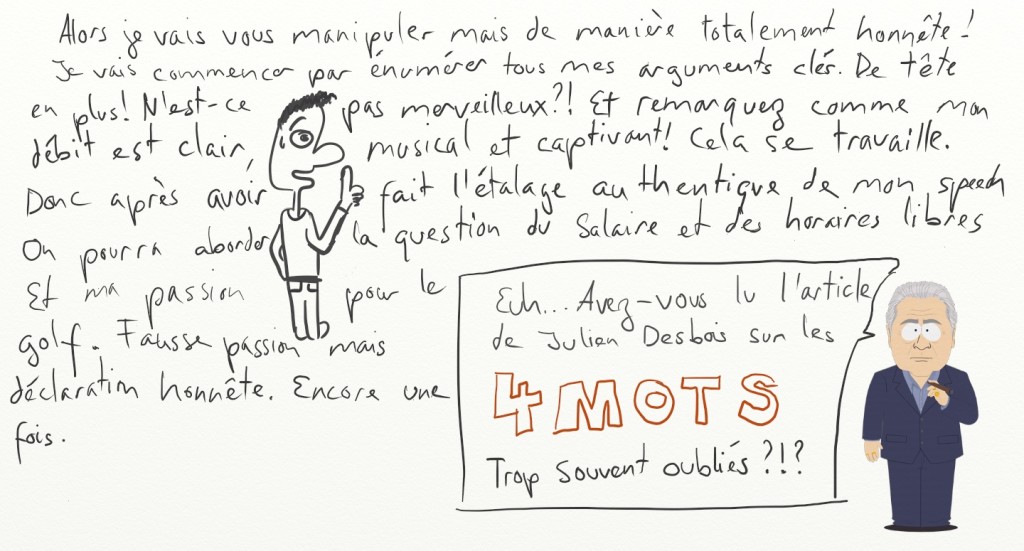 Alors je vais vous manipuler mais de manière totalement honnête!
Je vais commencer par énumérer tous mes arguments clés. De tête
en plus! N'est-ce pas merveilleux?! Et remarquez comme mon
débit est clair, musical et captivant! Cela se travaille.
Donc après avoir fait l'étalage authentique de mon speech
On pourra aborder la question du Salaire et des horaires libres
Et ma passion pour le
golf. Fausse passion mais
déclaration honnête. Encore une
fois.
Euh... Avez-vous lu l'article
de Julien Desbois sur les
4 MOTS
Trop souvent oubliés?!?